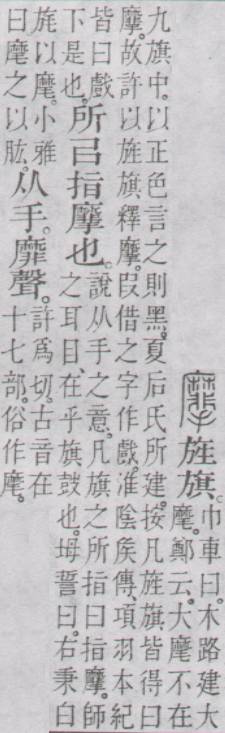 旌旗。巾車曰。木路建大麾。鄭云。大麾不在
九旗中。以正色言之則黑。夏后氏所建。按凡旌旗皆得曰𪎮。故許以旌旗釋𪎮。叚借之字作戲。淮陰矦傳、項羽本紀
皆曰戲下是也。所㠯指𪎮也。說从手之意。凡旗之所指曰指𪎮。師之耳目、在乎旗鼓也。坶誓曰。右秉白
旄以麾。小雅曰麾之以肱。从手。靡聲。許爲切。古音在十七部。俗作麾。